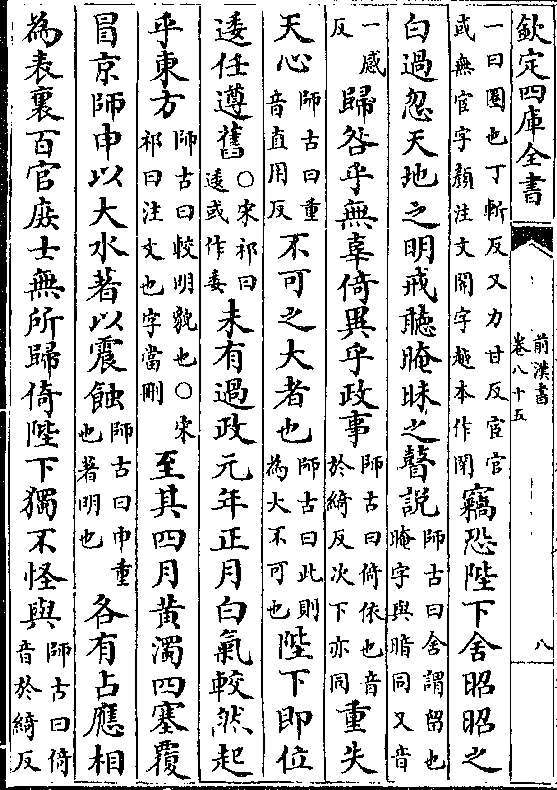 欽定四庫全書
前漢書
卷八十五
八
一曰圈也丁斬反又力甘反宦官
或無官字顏注文閉字越本作閑
竊恐陛下舍昭昭之
白過忽天地之明戒聽晻昧之瞽說
師古曰舍謂留也
晻字與暗同又音
一感
反
歸咎乎無辜倚異乎政事
師古曰倚依也音
於綺反次下亦同
重失
天心
師古曰重
音直用反
不可之大者也
師古曰此則
為大不可也
陛下即位
逶任遵舊
○宋祁曰
逶或作委
未有過政元年正月白氣較然起
乎東方
師古曰較明貌也○宋
祁曰注文也字當刪
至其四月黃濁四塞覆
冒京師申以大水著以震蝕
師古曰申重
也著明也
各有占應相
為表裏百官庶士無所歸倚陛下獨不怪與
師古曰倚
音於綺反